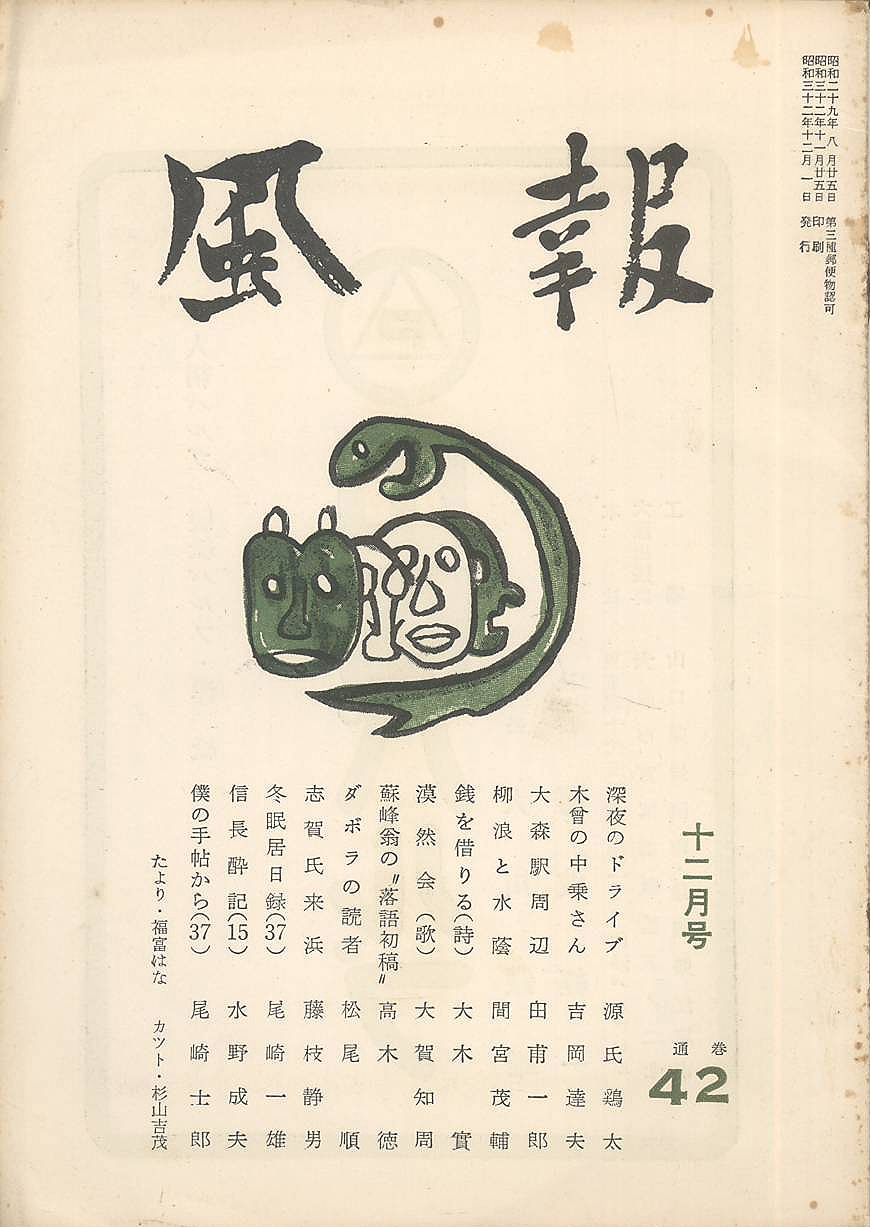 昭和二十九年八月廿五日 第三種郵便物認可
昭和三十二年十一月廿五日 印刷
昭和三十二年十二月一日 発行
風報
十二月号
通巻
42
深夜のドライブ 源氏鶏太
木曾の中乗さん 吉岡達夫
大森駅周辺 田甫一郎
柳浪と水蔭 間宮茂輔
銭を借りる(詩) 大木實
漠然会(歌) 大賀知周
蘇峰翁の〝落語初稿〟 高木徳
ダボラの読者 松尾順
志賀氏来浜 藤枝静男
冬眠居日録(37) 尾崎一雄
信長酔記(15) 水野成夫
僕の手帖から(37) 尾崎士郎
たより・福富はな カツト・杉山吉茂